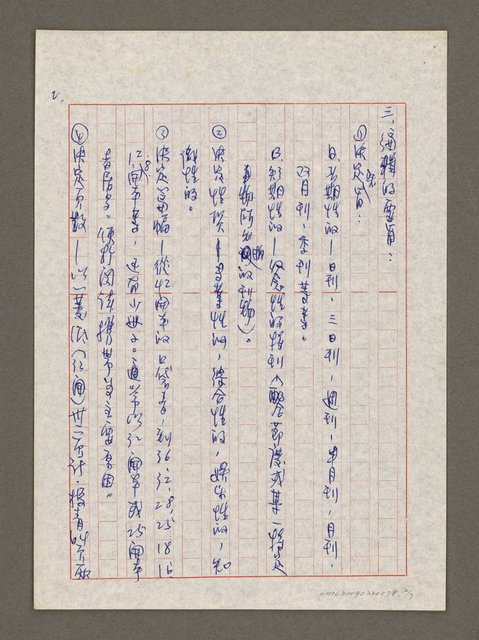 三、編輯的要領：
①決定定期：
A.長期性的—日刊，三日刊，週刊，半月刊，月刊，
雙月刊，季刊等等。
B.短期性的—紀念性的特刊（配合節慶或某一特定
事物所出的刊物）。
②決定性質—專業性的，綜合性的，娛樂性的，知
識性的。
③決定篇幅—從42開本的口袋書，到36、32、28、25、18、16、
12、8開本等，還有小冊子。通常以32開本或25開本
者居多。便於閱讀攜帶為主要原因。
④決定頁數—以一菱紙（32開）卅二頁計，
2.
NMTL20090320078, 2/7